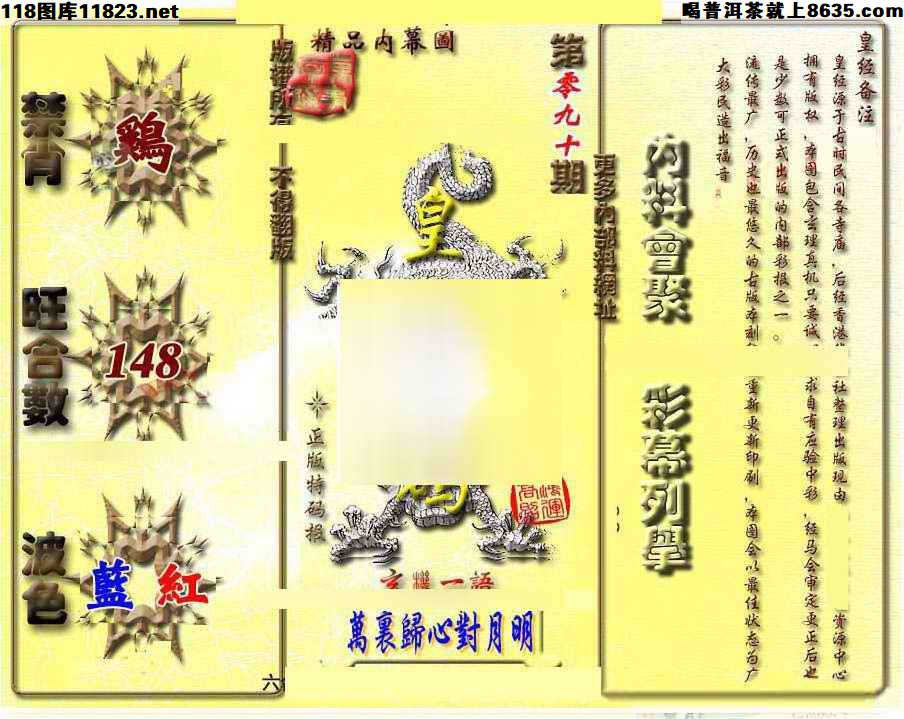 118图库11823.net
喝普洱茶就上8635.com
精品内幕圖
第零九十期
版權所有
不得翻版
禁肖
鷄
旺合數
148
波色
藍 紅
皇
正版特码报
玄機一語
萬裏歸心對月明
更多内部料網址
内料會聚
彩幕列舉
皇经备注
皇经源于古时民间各寺庙,后经香港
社整理出版现由
资源中心
拥有版权,本图包含玄理真机只要诚
求自有应验中彩,经马会审定更正后也
是少数可正式出版的内部彩报之一。
流传最广,历史也最悠久的古版本刻
重新更新印刷,本图会以最佳状态为广
大彩民造出福音
六